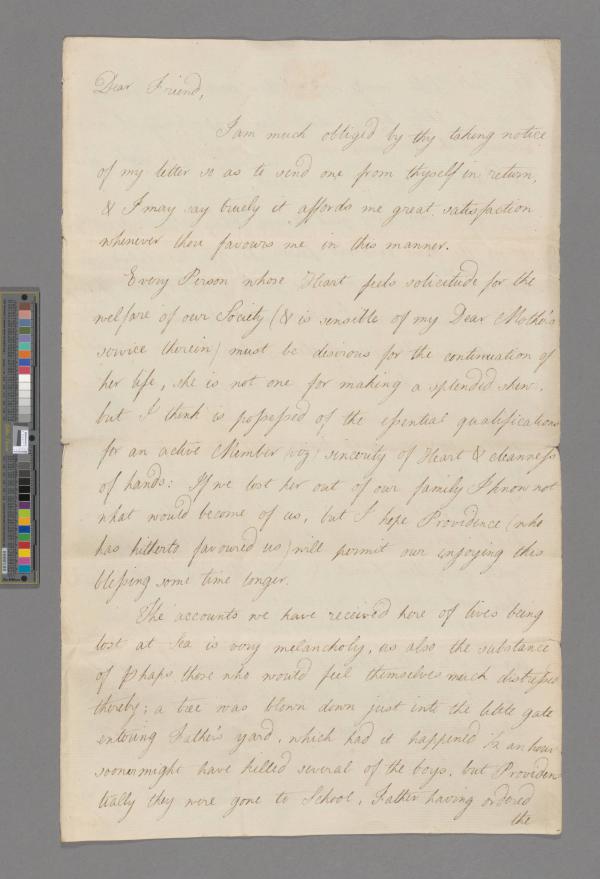 Dear Friend,
I am much obliged by thy taking notice
of my letter so as to send one from thyself in return,
& I may say truely it affords me great satisfaction
whenever thou favours me in this manner.
Every Person whose Heart feels solicitude for the
welfare of our Society (& is sensible of my Dear Mother's
service therein) must be desirous for the continuation of
her life, she is not one for making a splendid shew,
but I think is possessed of the essential qualifications
for an active Member (viz) sincerity of Heart & cleanness
of hands: If we lost her out of our family I know not
what would become of us, but I hope Providence (who
has hitherto favoured us) will permit our enjoying this
blessing some time longer.
The accounts we have received here of lives being
lost at Sea is very melancholy, as also the substance
of Phaps those who would feel themselves much distressed
thereby; a tree was blown down just into the little gate
entering Father's yard, which had it happened ½ an hour
sooner might have killed several of the boys, but Providen
tially they were gone to School, Father having ordered
the